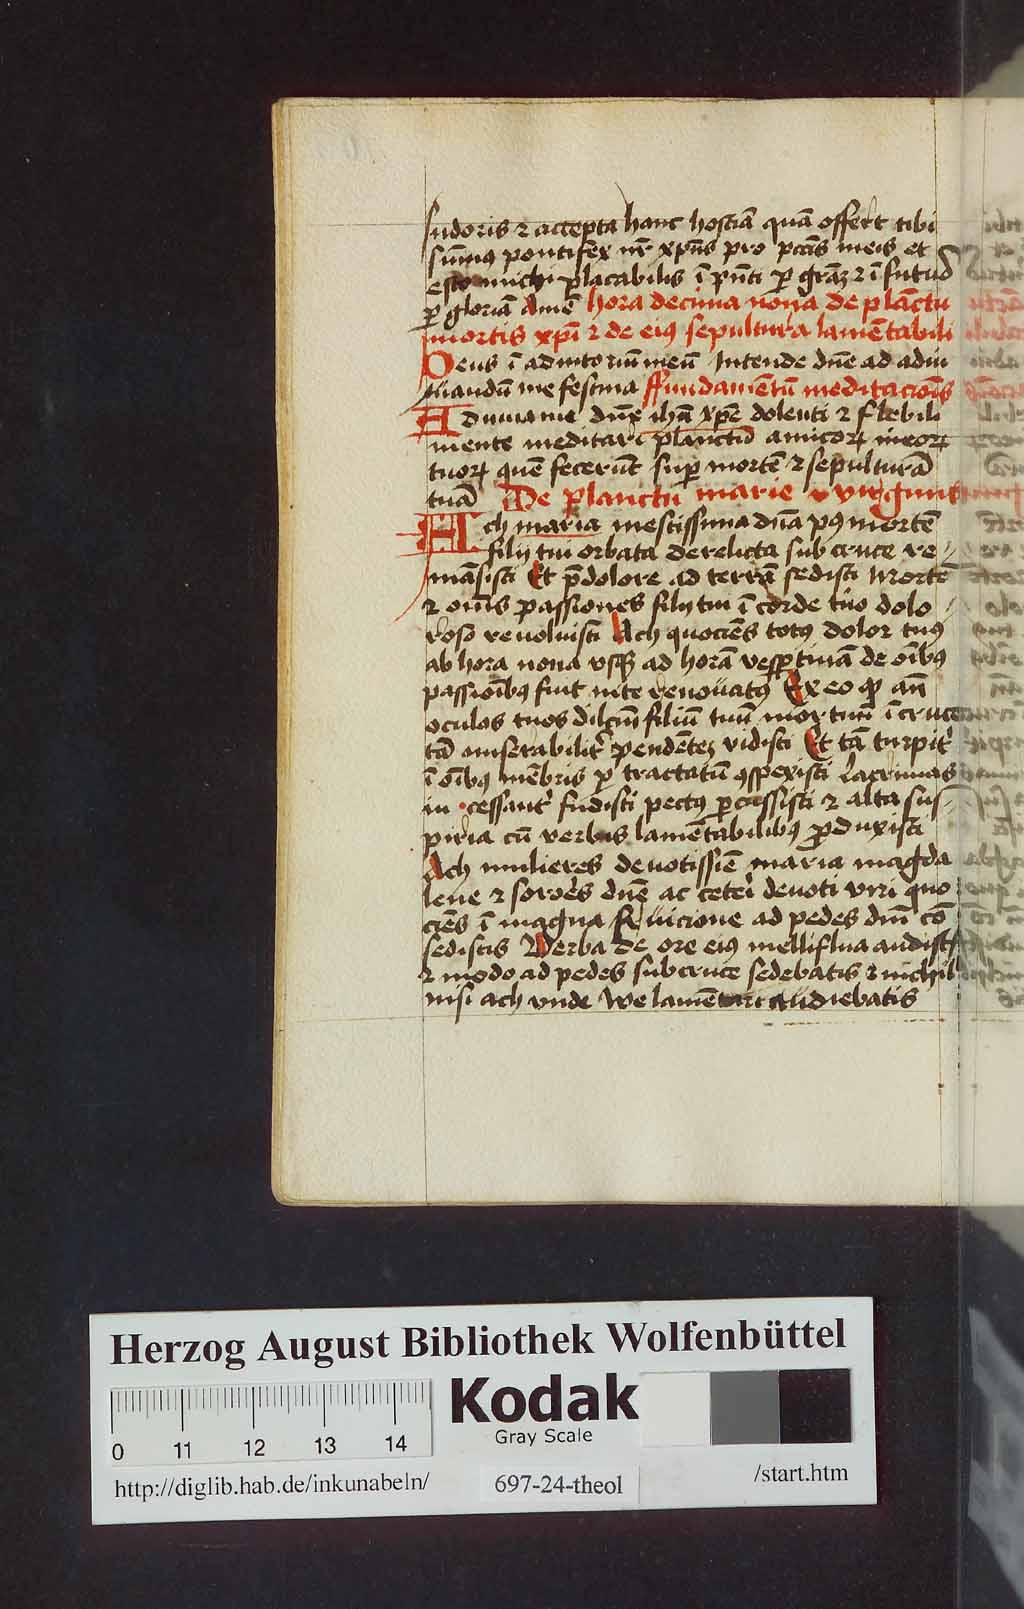 sudoris ⁊ accepta hanc hostiā quā offert tibi
sūmꝰ pontifex nr̄ xp̄us pro pcc̄is meis et
esto michi placabilis ī pn̄ti ꝑ grāꝫ ⁊ ī futuꝝ
ꝑ gloriā Amē hora decima nona de plāctu
mortis xp̄i ⁊ de eiꝰ sepultura lamētabili
Deus ī adiutoriū meū Intende dn̄e ad adiu
uandū me festina ffundamētū meditaciōis
Adiuua me dn̄e ih̄u xp̄e dolenti ⁊ flebili
mente meditari planctū amicoꝝ meoꝝ
tuoꝝ quē fecerūt suꝑ mortē ⁊ sepulturā
tuā De planctu marie v virginis
Ach maria mestissima dn̄a pꝰ mortē
filij tui orbata derelicta sub cruce re
māsisti Et p̄ dolore ad terrā sedisti Mortē
⁊ oīns passiones filij tui ī corde tuo dolo
roso reuoluisti Ach quociēs totꝰ dolor tuꝰ
ab hora nona vsqꝫ ad horā vesꝑtinā de oībꝰ
passioībꝰ fuit in te renouatꝰ Ex eo qꝫ añ
oculos tuos dilcm̄ filiū tuū mortuū ī cruce
tā miserabilitˀ pendētēꝫ vidisti Et tā turpitˀ
ī oībꝰ mēbris ꝑtractatū ꝯspexisti Lacrimas
in cessantˀ fudisti pectꝰ ꝑcussisti ⁊ alta sus
piria cū verbis lamētabilibꝰ ꝓduxisti
Ach mulieres deuotissiē maria magda
lene ⁊ sorores dn̄e ac ceteri deuoti viri quo
ciēs ī magna ad pedes dn̄i cō
sedistis Verba de ore eiꝰ melliflua audistis
⁊ modo ad pedes sub cruce sedebatis ⁊ nichil
nisi ach vnde we lamētari audiebatis
Herzog August Bibliothek Wolfenbüttel
Kodak
Gray Scale
0 11 12 13 14
http://diglib.hab.de/inkunabeln/
697-24-theol
/start.htm